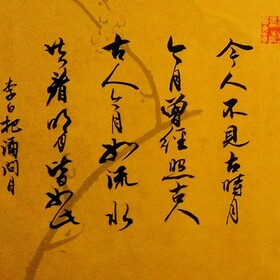 今人不見古時月
今月曾經照古人
古人今月如流水
共看明月皆如此
李白把酒問月